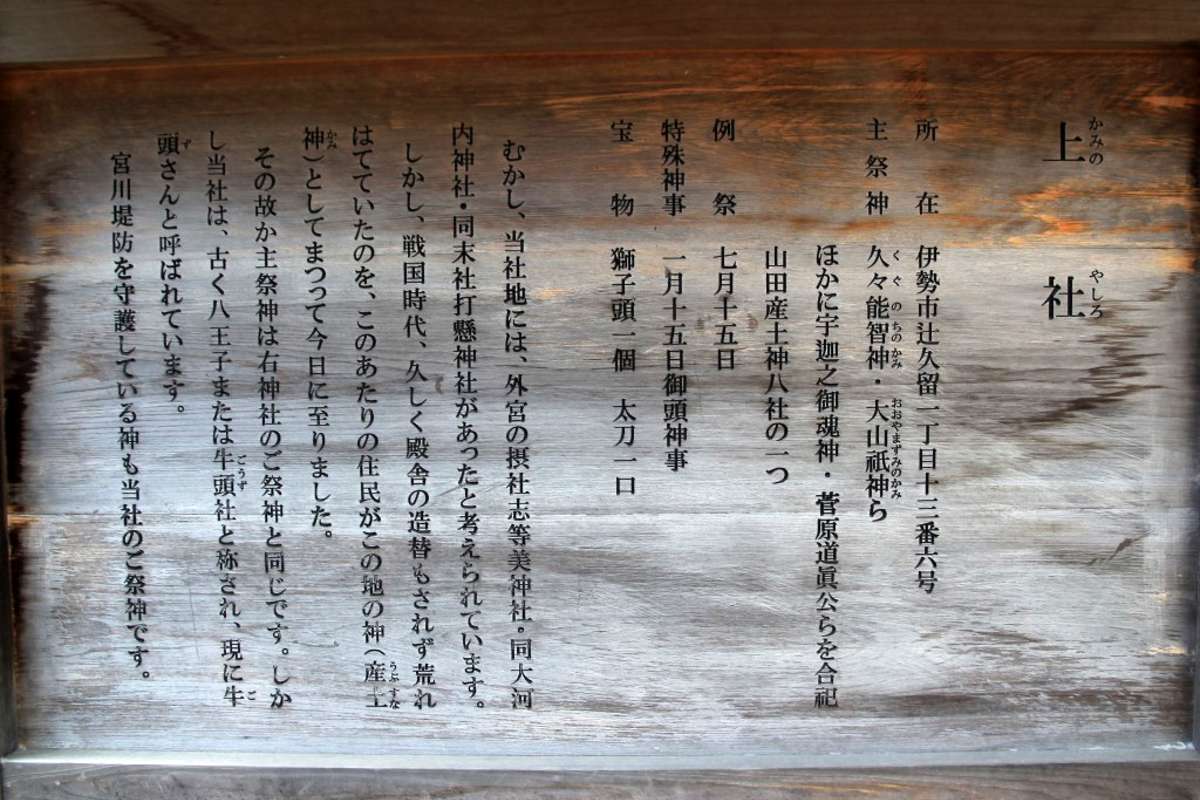 上社
かみの やしろ
所在 伊勢市辻久留一丁目十三番六号
主祭神 久々能智神・大山祇神ら
くぐのちのかみ おおやまずみのかみ
ほかに宇迦之御魂神・菅原道眞公らを合祀
山田産土神八社の一つ
例祭 七月十五日
特殊神事 一月十五日御頭神事
宝物 獅子頭一個 太刀一口
むかし、当社地には、外宮の摂社志等美神社。同大河
内神社・同末社打懸神社があったと考えられています。
しかし、戦国時代、久しく殿舎の造替もされず荒れ
はてていたのを、このあたりの住民がこの地の神(産土
うぶすな
神)としてまつって今日に至りました。
かみ
その故か主祭神は右神社のご祭神と同じです。しか
し当社は、古く八王子または牛頭社と称され、現に牛
ごうず ご
頭さんと呼ばれています。
ず
宮川堤防を守護している神も当社のご祭神です。